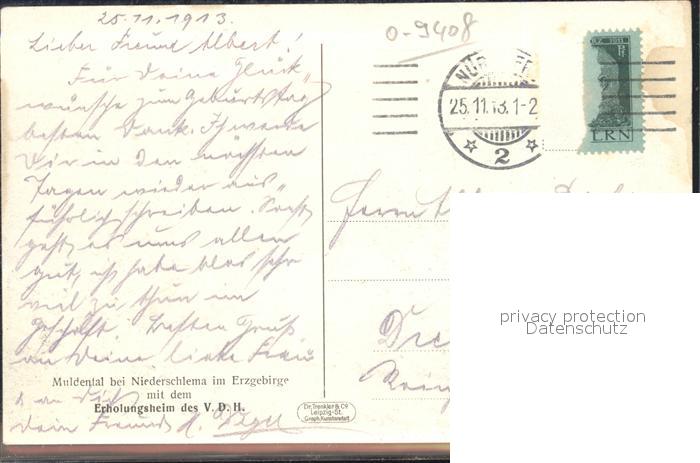 25.11.1913.
Lieber Freund Albert!
Für Deine Glück-
wünsche zum Geburtstag
besten Dank. Ich werde
Dir in den nächsten
Tagen wieder aus-
führlich schreiben. Sonst
geht es uns allen
gut, ich habe blos sehr
viel zu thun im
Geschäft. Besten Gruß
an Deine liebe Frau
& an Dich
Dein Freund
Muldental bei Niederschlema im Erzgebirge
mit dem
Erholungsheim des V. D. H.
Dr. Trenkler & Co
Leipzig-St.
Graph. Kunstanstalt
0-9408
25.11.13. 1-2
2
LRN
Herrn
privacy protection
Datenschutz